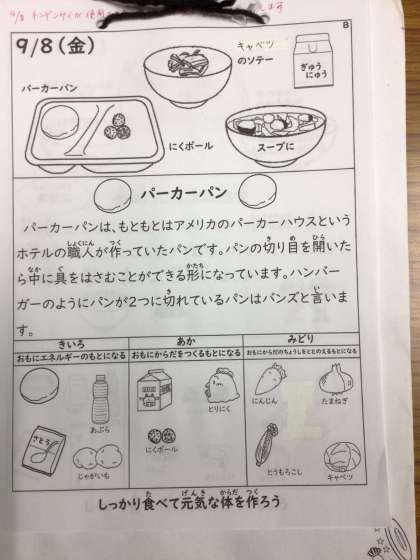 B
9/8(金)
キャベツ
のソテー
ぎゅう
にゅう
パーカーパン
にくボール
スープに
パーカーパン
パーカーパンは、もともとはアメリカのパーカーハウスという
ホテルの職人が作っていたパンです。パンの切り目を開いた
ら中に具をはさむことができる形になっています。ハンバー
ガーのようにパンが2つに切れているパンはバンズと言いま
す。
きいろ あか みどり
おもにエネルギーのもとになる おもにからだをつくるもとになる おもにからだのちょうしをととのえるもとになる
あぶら とりにく にんじん たまねぎ
さとう
じゃがいも にくボール とうもろこし キャベツ
しっかり食べて元気な体を作ろう